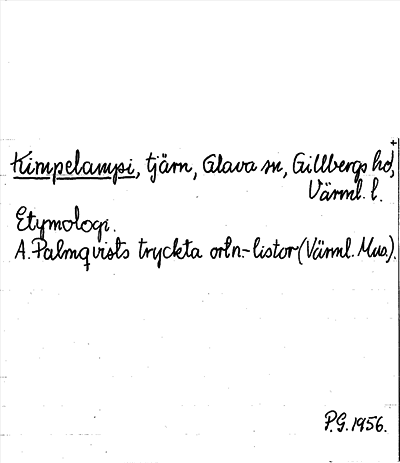 Kimpelampi, tjärn, Glava sn, Gillbergs hd,
Värml. l.
Etymologi.
A. Palmqvists tryckta ortn.-listor (Värml. Mus.).
P.G. 1956.